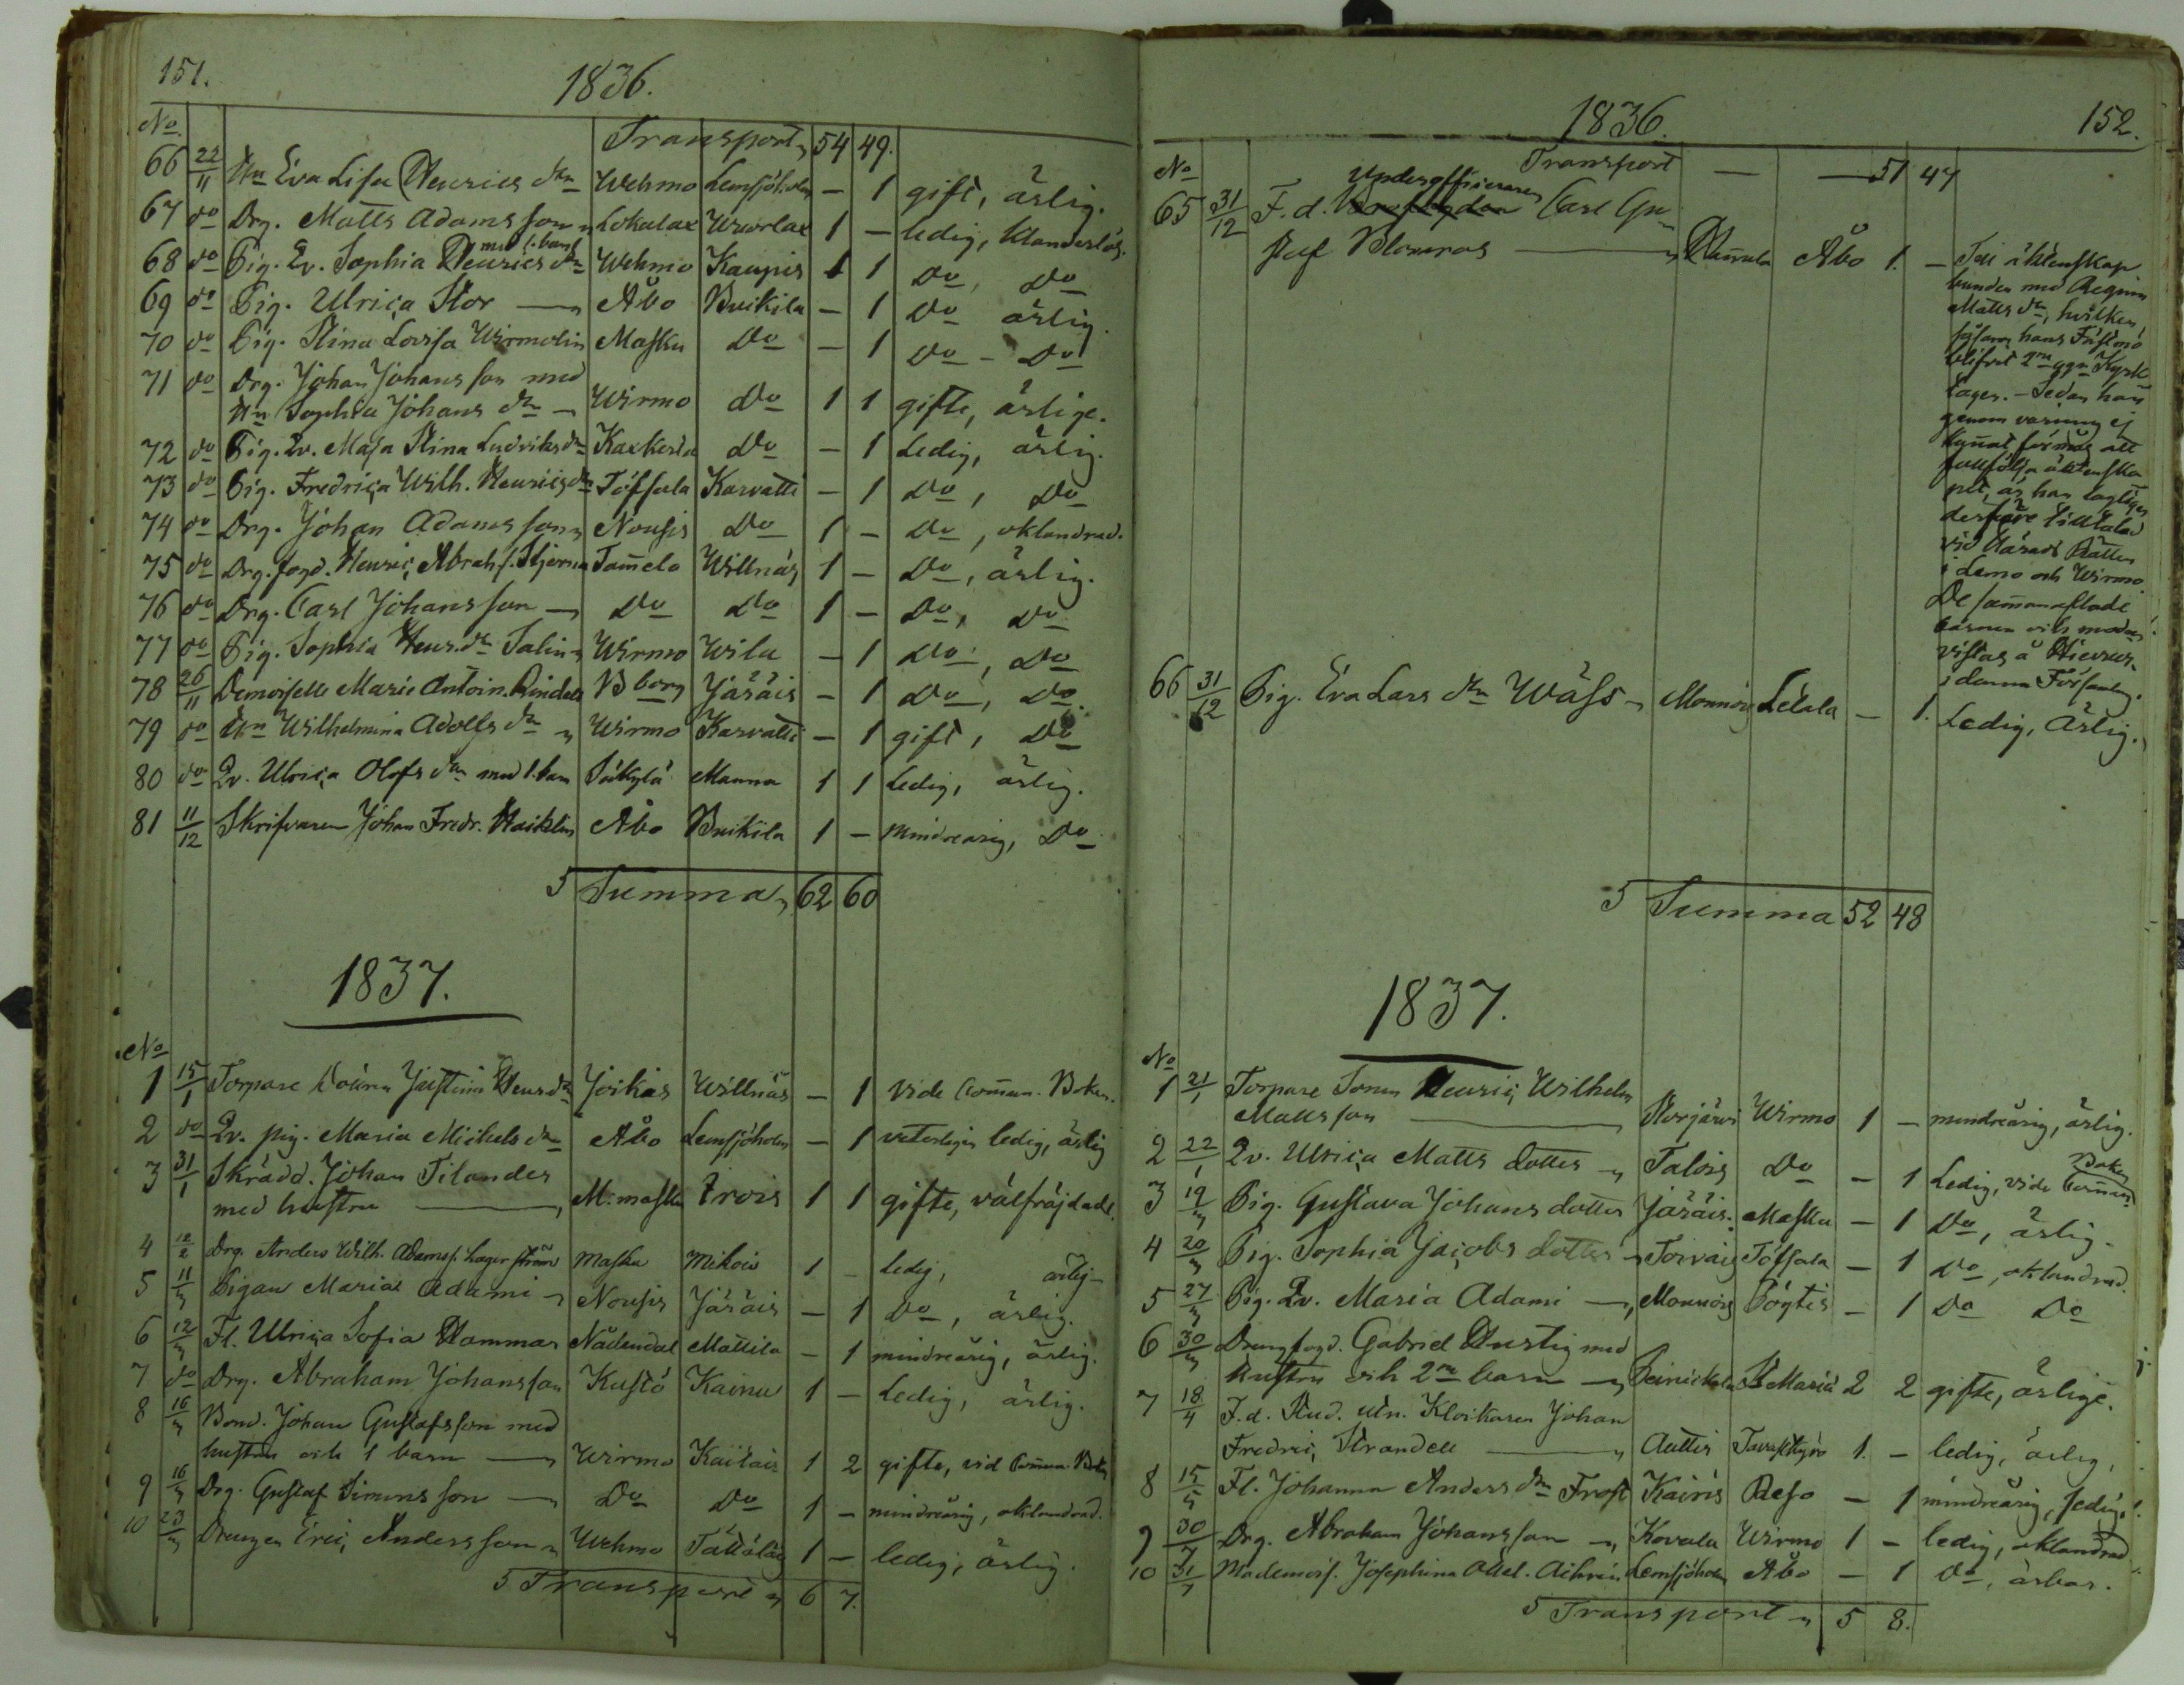 151.
1836.
No Transport 54 49.
66 22/11 Hu Eva Lisa Henrics dr Wehmo Lemsjöholm — 1 gift, ärlig.
67 do Drg. Matts Adamsson Lokalax 1 — ledig, klanderlös.
68 do Pig. Qv. Sophia Henrics dr med 1. barn Wehmo Kaupis 1 1 Do, Do
69 do Pig. Ulrica Stor — Åbo Buikila — 1 Do ärlig.
70 do Pig. Stina Lovisa Wirmolin Masku Do — 1 Do - Do
71 do Drg. Johan Johansson med
Hu Sophia Johans dr — Wirmo Do 1 1 gifte, ärlige.
72 do Pig. Qv. Maja Stina Ludviks dr Karkerla Do — 1 Ledig, ärlig.
73 do Pig. Fredrica Wilh. Henrics dr Töfsala Karvatti — 1 Do, Do
74 do Drg. Johan Adamsson Nousis Do 1 — Do, oklandrad.
75 do Drg. fogd. Henric Abrah. s. Stjerna Tam̄ela Willnäs 1 — Do, ärlig.
76 do Drg. Carl Johansson — Do Do 1 — Do, Do
77 do Pig. Sophia Henr. dr Salin Wirmo Wila — 1 Do, Do
78 26/11 Demoiselle Marie Antoin. Rindell Bborg Järäis — 1 Do, Do.
79 do Hu Wilhelmina Adolfs dr Wirmo Karvatti — 1 gift, Do
80 do Qv. Ulrica Olofs dr med 1. barn Säkylä Manna 1 1 Ledig, ärlig.
81 11/12 Skrifvaren Johan Fredr. Åbo Buikila 1 — mindreårig, Do
Summa 62 60
1837.
No
1 15/1 Torpare Justina Henr. dr Joikas Willnäs — 1 vide Com̄un. Boken.
2 do Qv. pig. Maria Michels dr Åbo Lemsjöholm — 1 veterligen ledig, ärlig
3 31/1 Skrädd. Johan Tilander
med hustru — M:masku 1 1 gifte, välfräjdade.
4 12/2 Drg. Anders Wilh. Adams s. Lagerström Masku Mikois 1 — Ledig, ärlig
5 11/3 Pigan Maria Adami Nousis Järäis — 1 Do, ärlig.
6 12/3 Fl. Ulrica Sofia Hammar Nådendal Mattila — 1 mindreårig, ärlig.
7 do Drg. Abraham Johansson Kustö Kainu 1 — Ledig, ärlig.
8 16/3 Bond. Johan Gustafsson med
hustru och 1 barn — Wirmo Kaitais 1 2 gifte, vid Com̄un. Boken
9 16/3 Drg. Gustaf Simonsson — Do Do 1 — mindreårig, oklandrad.
10 23/3 Drengen Eric Andersson Wehmo 1 — ledig, ärlig.
Transport 6 7.
1836. 152.
No Transport — — 51 47
65 31/12 F. d. Underofficeraren Carl Gu-
staf Blomros — Åbo 1. — I äktenskap
bunden med Regina
Matts dr, hvilken
såsom hans Fästmö
blifvit 2ne ggr Kyrk
tagen. — Sedan han
genom varning ej
kun̄at förmås att
fullfölja äktenska
pet, är han lagligen
derföre tilltalad
vid Härads Rätten
i Lemo och Wirmo
De sam̄anaflade
barnen och modren
vistas å
i denna Församling.
66 31/12 Pig. Eva Lars dr Wäss Monnois Letala — 1. Ledig, ärlig.
Summa 52 48
1837.
No
1 21/1 Torpare Sonen Henric Wilhelm
Mattsson — Korjärvi Wirmo 1 — mindreårig, ärlig.
2 22/1 Qv. Ulrica Matts dotter Talois Do — 1 Ledig, vide Com̄un. Boken
3 19/3 Pig. Gustava Johans dotter Järäis Masku — 1 Do, ärlig.
4 20/3 Pig. Sophia Jacobs dotter Torvais Töfsala — 1 Do, oklandrad.
5 27/3 Pig. Qv. Maria Adami — Monnois Pöytis — 1 Do Do
6 30/3 Drengfogd. Gabriel Hurtig med
hustru och 2ne barn St Maria 2 2 gifte, ärlige.
7 18/4 F. d. Stud. utn. Klockaren Johan
Fredric Strandell — Auttis Tavastkyrö 1. — ledig, ärlig,
8 15/5 Fl. Johanna Anders dr Frost Kairis Reso — 1 mindreårig, ledig.
9 30/7 Drg. Abraham Johansson Kovala Wirmo 1 — ledig, oklandrad
10 31/7 Mademois. Josephina Adel. Lemsjöholm Åbo — 1 Do, ärbar.
Transport 5 8.